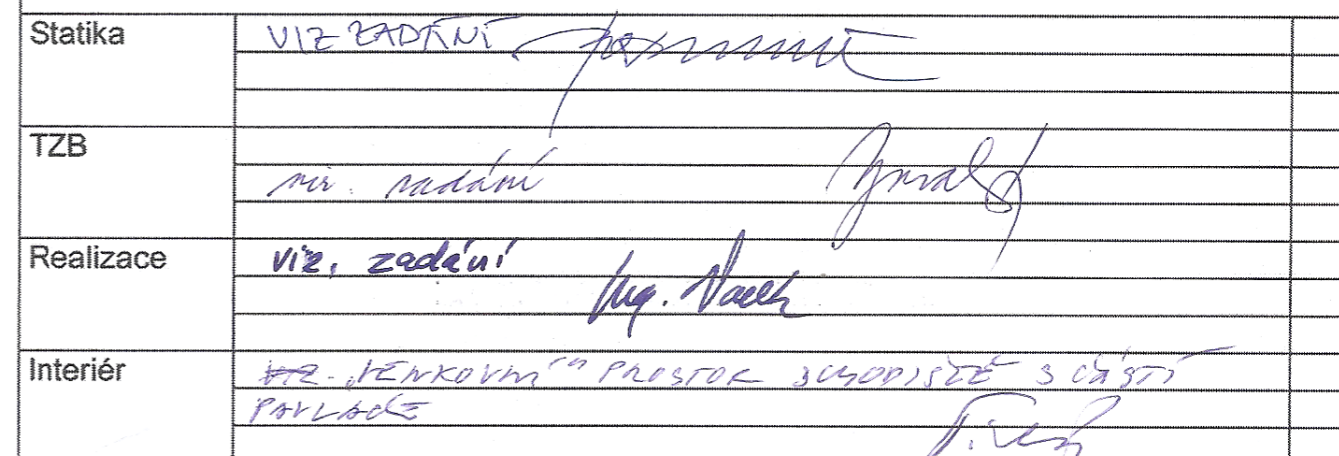 Statika VIZ ZADÁNÍ
TZB viz. zadání
Realizace viz. zadání
Ing. Vacek
Interiér VIZ "VENKOVNÍ" PROSTOR SCHODIŠTĚ S ČÁSTÍ
PAVLAČE